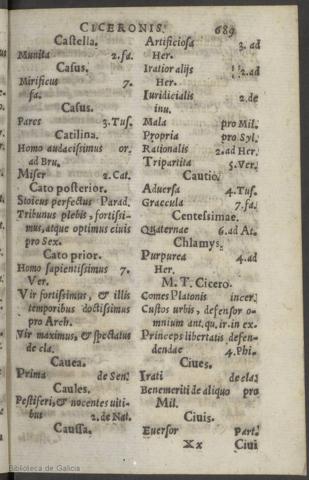 CICERONIS. 689
Castella.
Munita 2. fa.
Casus.
Mirificus 7.
fa.
Casus.
Pares 3. Tus.
Catilina.
Homo audacissimus or.
ad Bru.
Miser 2. Cat.
Cato posterior.
Stoicus perfectus Parad.
Tribunus plebis, fortissi-
mus, atque optimus ciuis
pro Sex.
Cato prior.
Homo sapientissimus 7.
Ver.
Vir fortissimus, & illis
temporibus doctissimus
pro Arch.
Vir maximus, & spectatus
de cla.
Cauea.
Prima de Sen.
Caules.
Pestiferi, & nocentes uiti-
bus 2. de Nat.
Caussa.
Artificiosa 3. ad
Her.
Iratior alijs 2. ad
Her.
Iuridicialis 2. de
inu.
Mala pro Mil.
Propria pro Syl.
Rationalis 2. ad Her.
Tripartita 5. Ver.
Cautio.
Aduersa 4. Tus.
Graecula 7. fa.
Centesimae.
Quaternae 6. ad At.
Chlamys.
Purpurea 4. ad
Her.
M. T. Cicero.
Comes Platonis incer.
Custos urbis, defensor o-
mnium ant. qu. ir. in ex.
Princeps libertatis defen-
dendae 4. Phi.
Ciues.
Irati de cla.
Benemeriti de aliquo pro
Mil.
Ciuis.
Euersor Part.
Xx Ciui
Biblioteca de Galicia